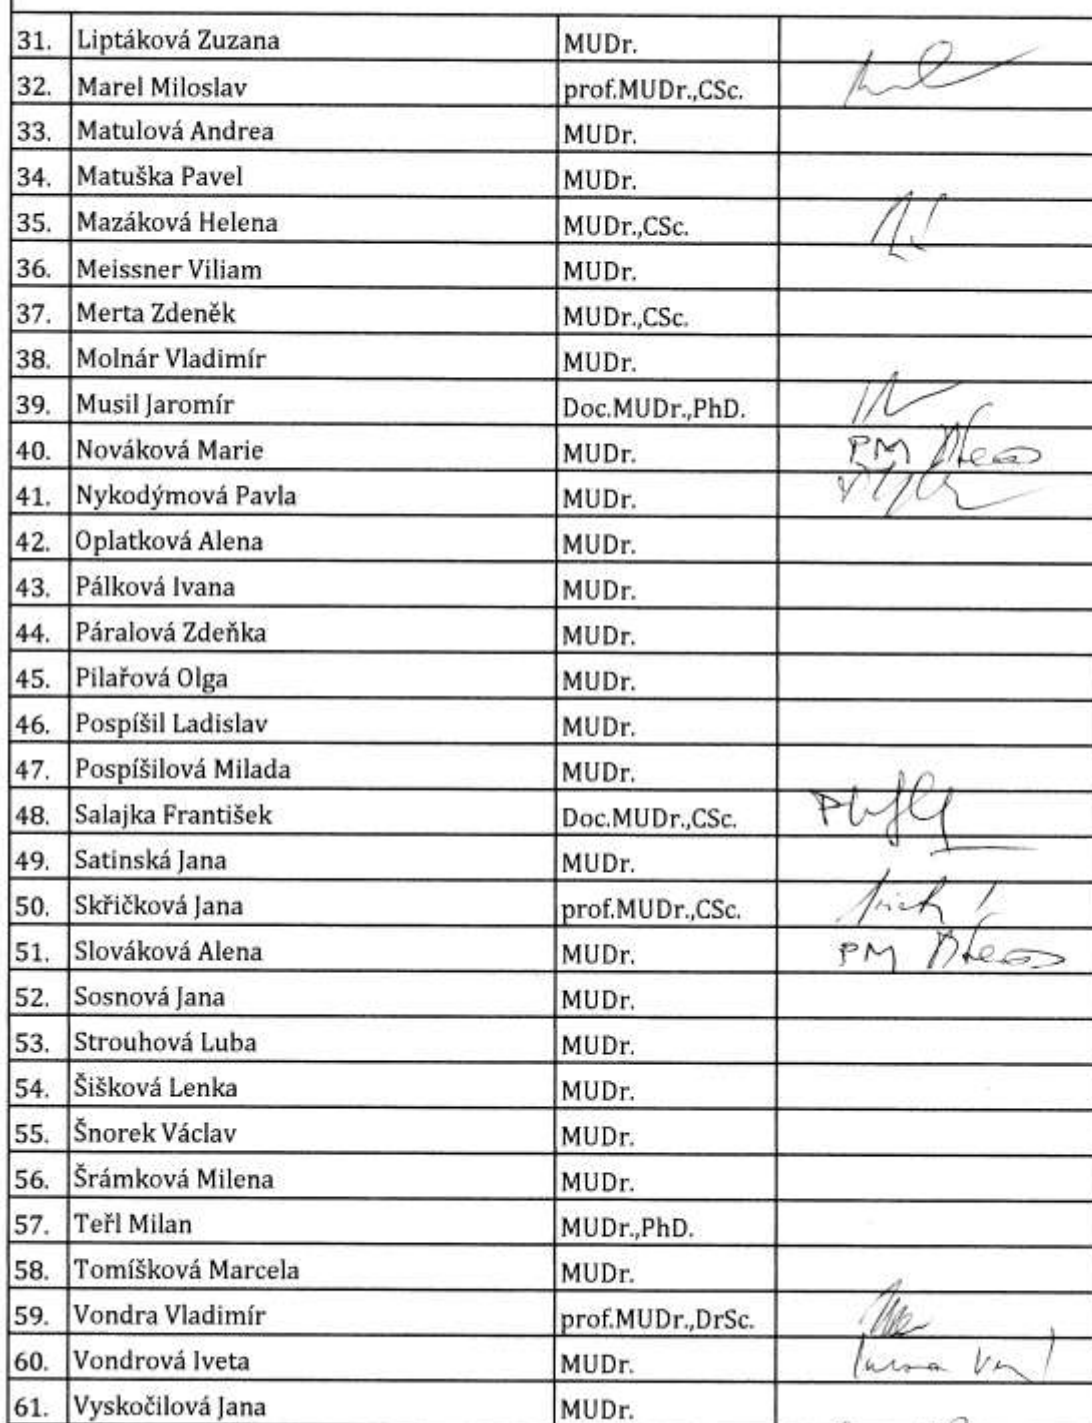 31. Liptáková Zuzana MUDr.
32. Marel Miloslav prof.MUDr.,CSc.
33. Matulová Andrea MUDr.
34. Matuška Pavel MUDr.
35. Mazáková Helena MUDr.,CSc.
36. Meissner Viliam MUDr.
37. Merta Zdeněk MUDr.,CSc.
38. Molnár Vladimír MUDr.
39. Musil Jaromír Doc.MUDr.,PhD.
40. Nováková Marie MUDr. PM
41. Nykodýmová Pavla MUDr.
42. Oplatková Alena MUDr.
43. Pálková Ivana MUDr.
44. Páralová Zdeňka MUDr.
45. Pilařová Olga MUDr.
46. Pospíšil Ladislav MUDr.
47. Pospíšilová Milada MUDr.
48. Salajka František Doc.MUDr.,CSc.
49. Satinská Jana MUDr.
50. Skřičková Jana prof.MUDr.,CSc.
51. Slováková Alena MUDr. PM
52. Sosnová Jana MUDr.
53. Strouhová Luba MUDr.
54. Šišková Lenka MUDr.
55. Šnorek Václav MUDr.
56. Šrámková Milena MUDr.
57. Teřl Milan MUDr.,PhD.
58. Tomíšková Marcela MUDr.
59. Vondra Vladimír prof.MUDr.,DrSc.
60. Vondrová Iveta MUDr.
61. Vyskočilová Jana MUDr.